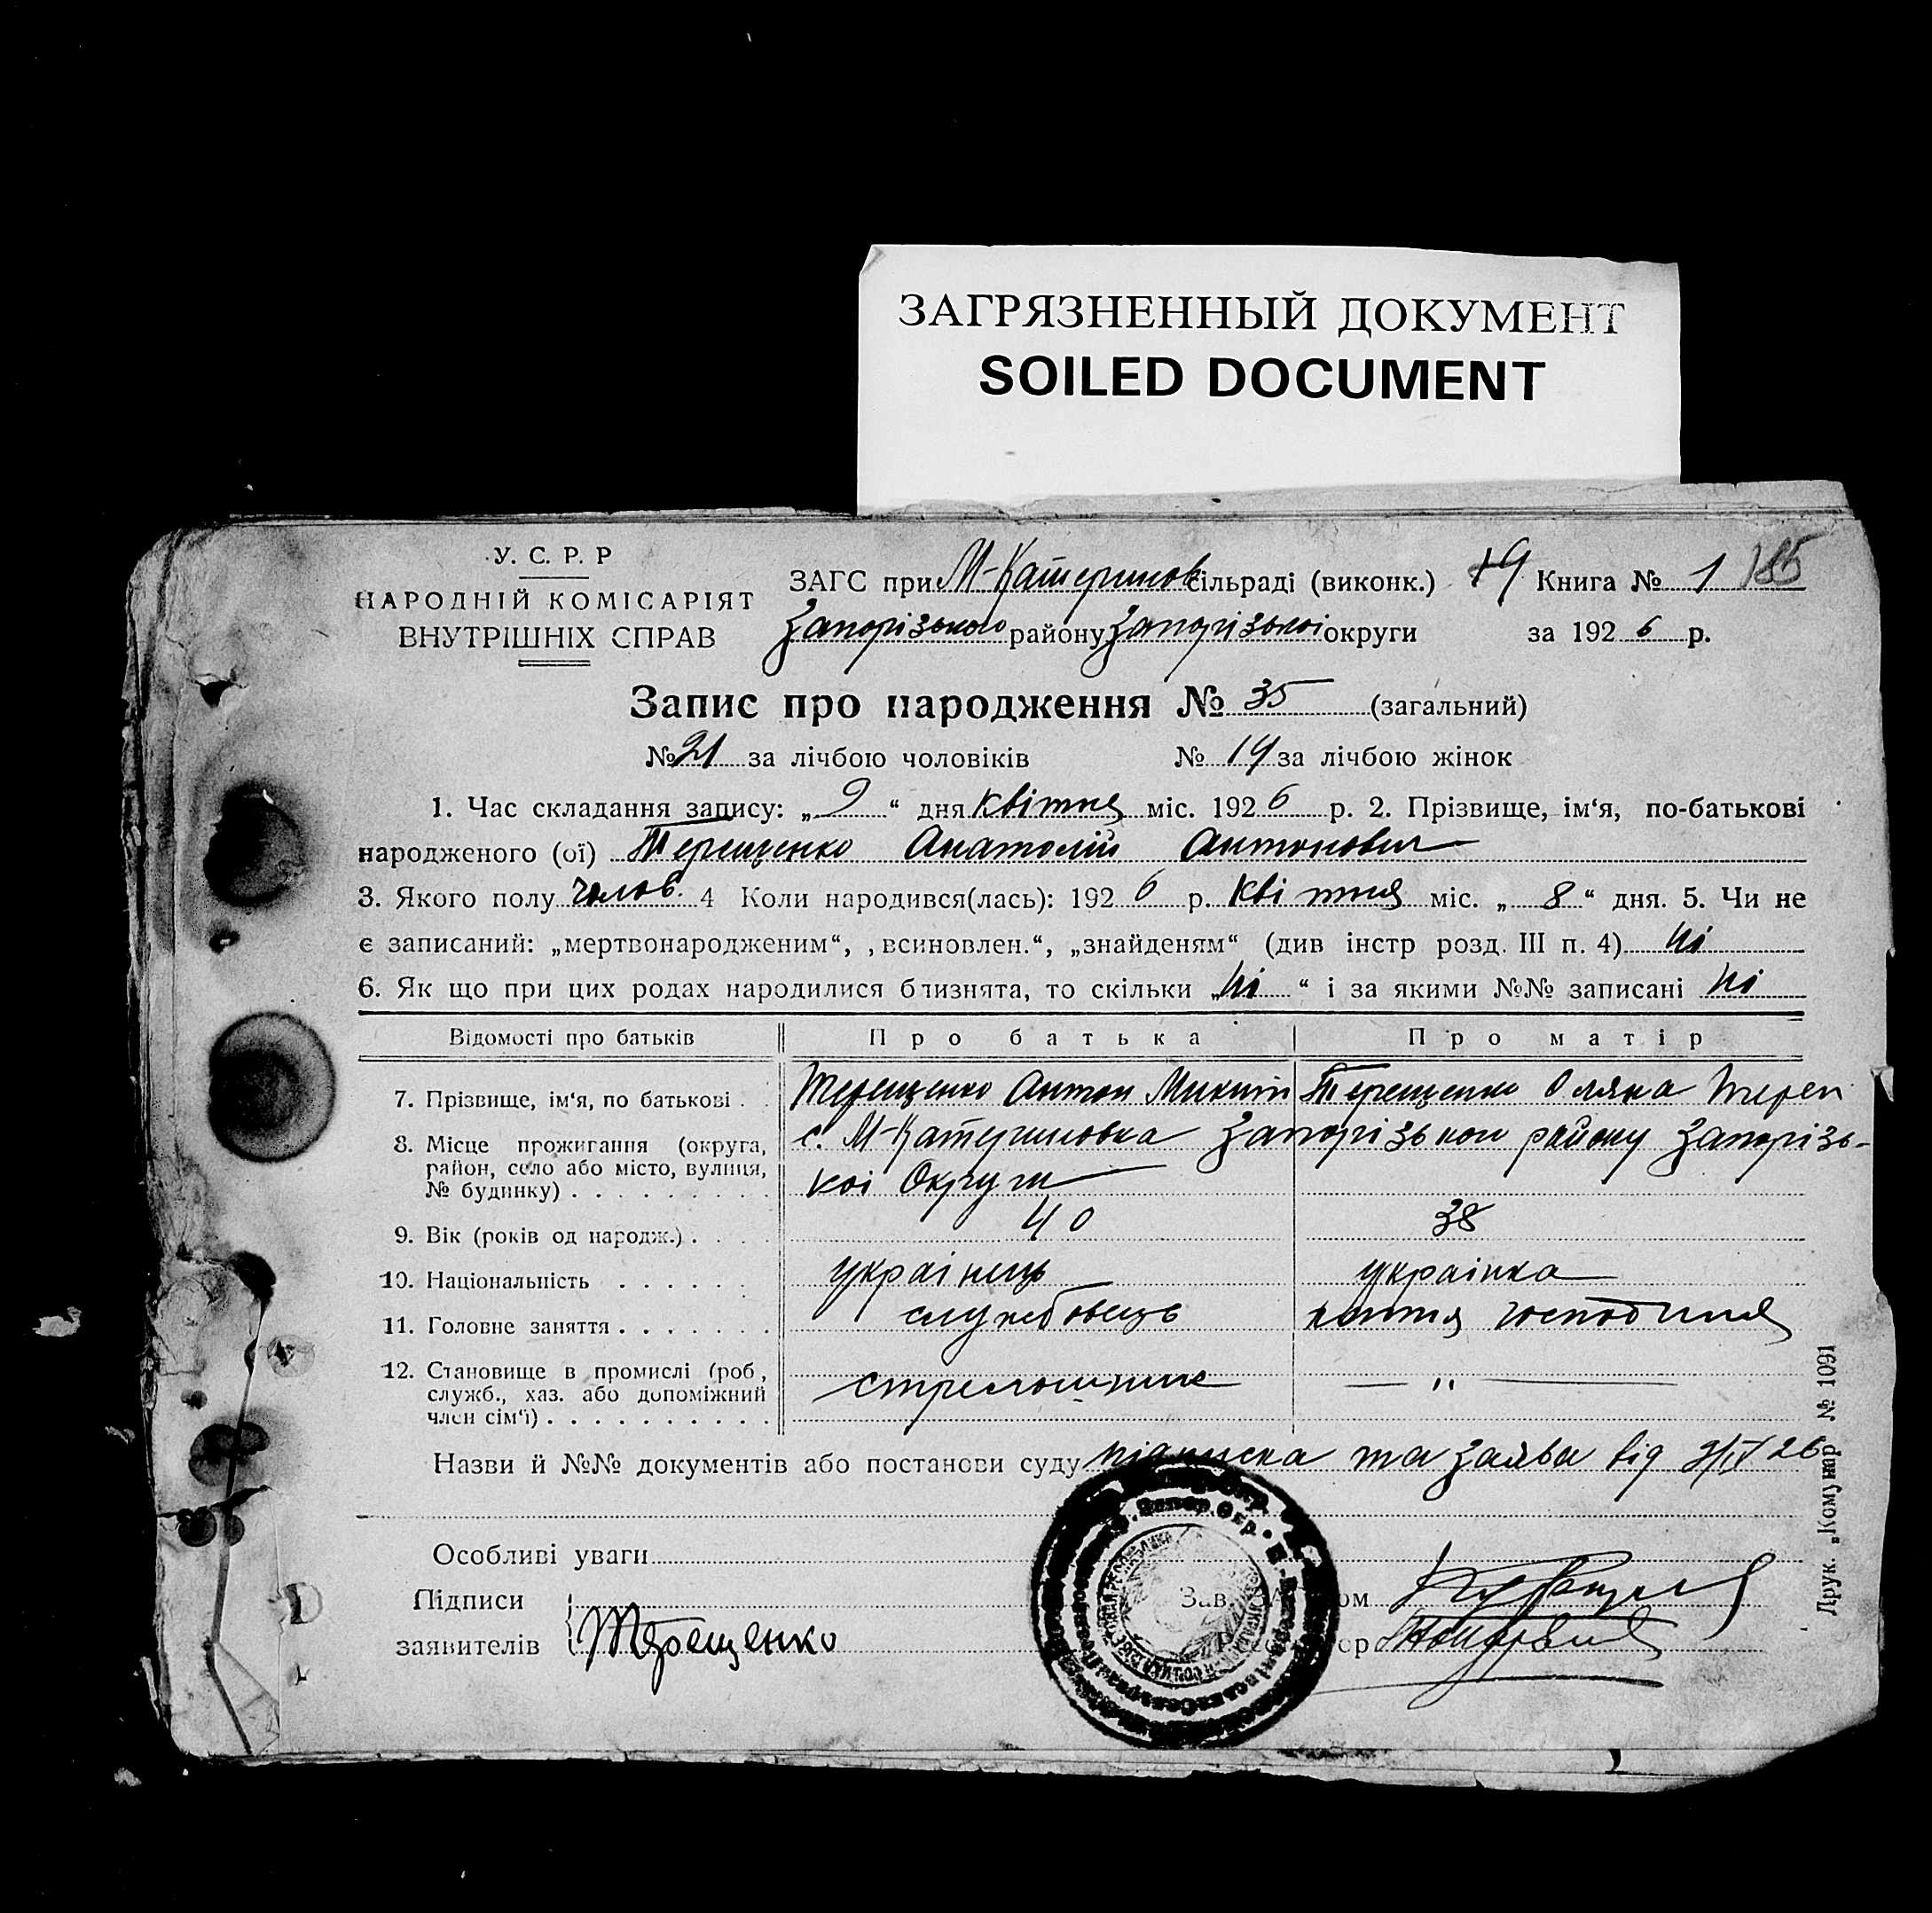 ЗАГРЯЗНЕННЫЙ ДОКУМЕНТ
SOILED DOCUMENT
У. С. Р. Р
НАРОДНІЙ КОМІСАРІЯТ
ВНУТРІШНІХ СПРАВ
ЗАГС при М-Катеринов сільраді (виконк.) 19 Книга № 1 185
Запорізького району Запорізької округи за 1926 р.
Запис про народження № 35 (загальний)
№ 21 за лічбою чоловіків № 14 за лічбою жінок
1. Час складання запису: „9“ дня квітня міс. 1926 р. 2. Прізвище, ім‘я, по-батькові
народженого (ої) Терещенко Анатолій Антонович
3. Якого полу чолов. 4 Коли народився(лась): 1926 р. квітня міс. „8“ дня. 5. Чи не
є записаний: „мертвонародженим“, „всиновлен.“, „знайденям“ (див інстр розд. III п. 4) ні
6. Як що при цих родах народилися близнята, то скільки „ні“ і за якими №№ записані ні
Відомості про батьків Про батька Про матір
7. Прізвище, ім‘я, по батькові . . Терещенко Антон Микит Терещенко Оляна Терен
8. Місце прожигання (округа, с. М-Катериновка Запорізького району Запорізь-
район, село або місто, вулиця,
№ будинку) . . . . . . . . . кої Округи
9. Вік (років од народж.) . . . . 40 38
10. Національність . . . . . українець українка
11. Головне заняття . . . . . . . службовець хатня господиня
12. Становище в промислі (роб,
служб., хаз. або допоміжний — " —
член сім‘ї) . . . . . . . . . .
Назви й №№ документів або постанови суду підписка та заява від 9/IV 26
Особливі уваги
Підписи
заявителів Терещенко
Друк. „Комунар“ № 1091